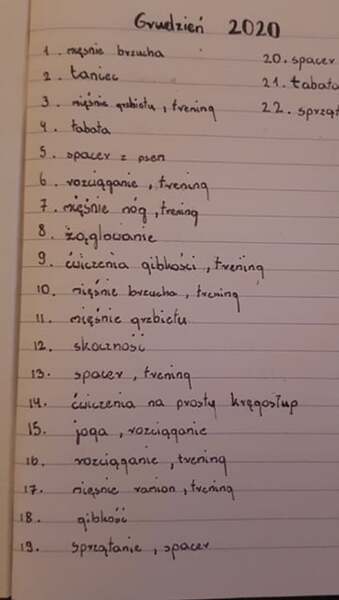 Grudzień 2020
1. mięśnie brzucha
2. taniec
3. mięśnie grzbietu, trening
4. tabata
5. spacer z psem
6. rozciąganie, trening
7. mięśnie nóg, trening
8. żąglowanie
9. ćwiczenia gibkości, trening
10. mięśnie brzucha, trening
11. mięśnie grzbietu
12. skoczność
13. spacer, trening
14. ćwiczenia na prosty kręgosłup
15. joga, rozciąganie
16. rozciąganie, trening
17. mięśnie ramion, trening
18. gibkość
19. sprzątanie, spacer
20. spacer
21. tabata
22. sprząt